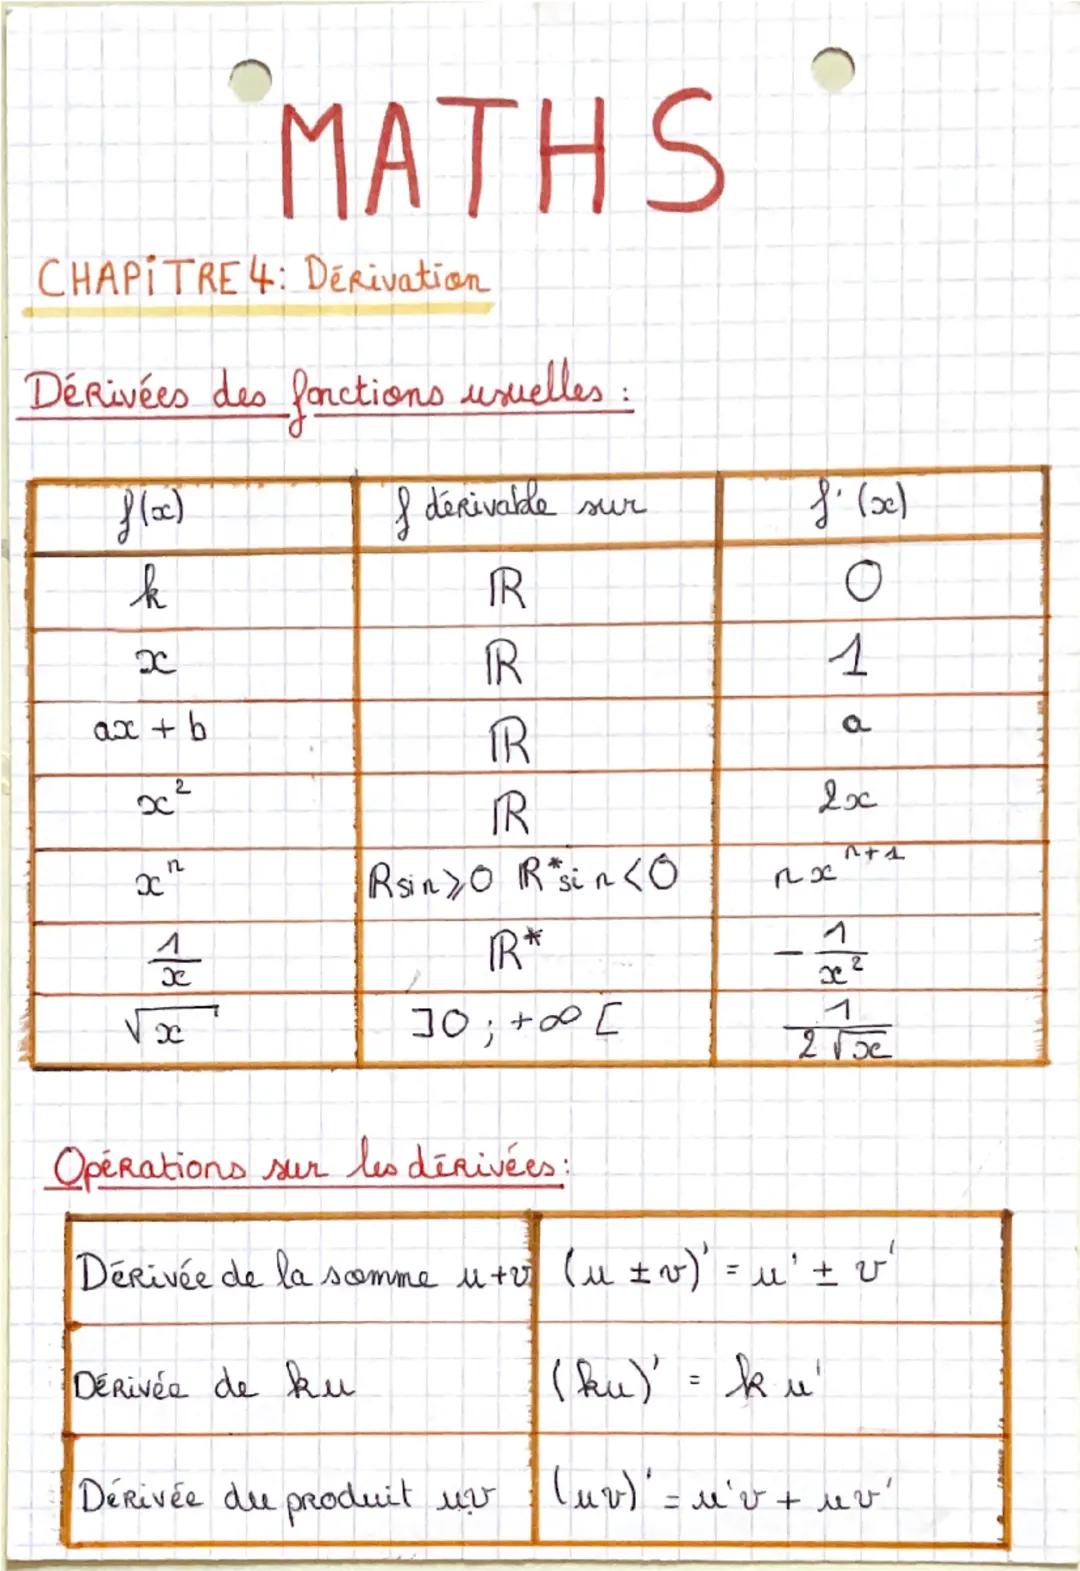 MATHS
CHAPITRE 4: Dérivation
Dérivées des fonctions usuelles :
f(x) f dérivable sur f'(x)
k ℝ 0
x ℝ 1
ax + b ℝ a
x² ℝ 2x
xⁿ ℝ si n ⩾ 0 ℝ* si n < 0 nxⁿ⁺¹
1/x ℝ* -1/x²
√x ]0 ; +∞[ 1/(2√x)
Opérations sur les dérivées:
Dérivée de la somme u+v (u ± v)' = u' ± v'
Dérivée de ku (ku)' = k u'
Dérivée du produit uv (uv)' = u'v + uv'